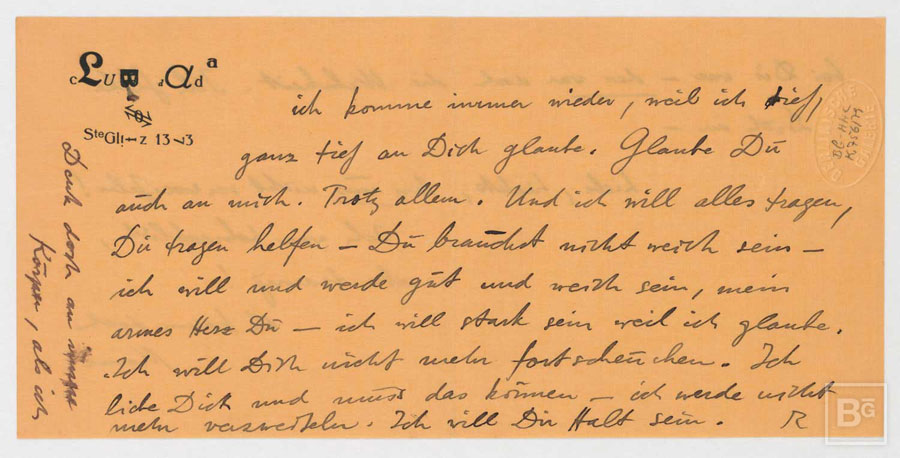 cLUB dada
SteGlitz 13 73
ich komme immer wieder, weil ich tief,
ganz tief an Dich glaube. Glaube Du
auch an mich. Trotz allem. Und ich will alles tragen,
Dir tragen helfen – Du brauchst nicht weich sein –
ich will und werde gut und weich sein, mein
armes Herz Du – ich will stark sein weil ich glaube.
Ich will Dich nicht mehr fortscheuchen. Ich
liebe Dich und muss das können – ich werde nicht
mehr verzweifeln. Ich will Dir Halt sein. R
Denk doch an
Körper, als ich
BG HHC
K 756/79
BG